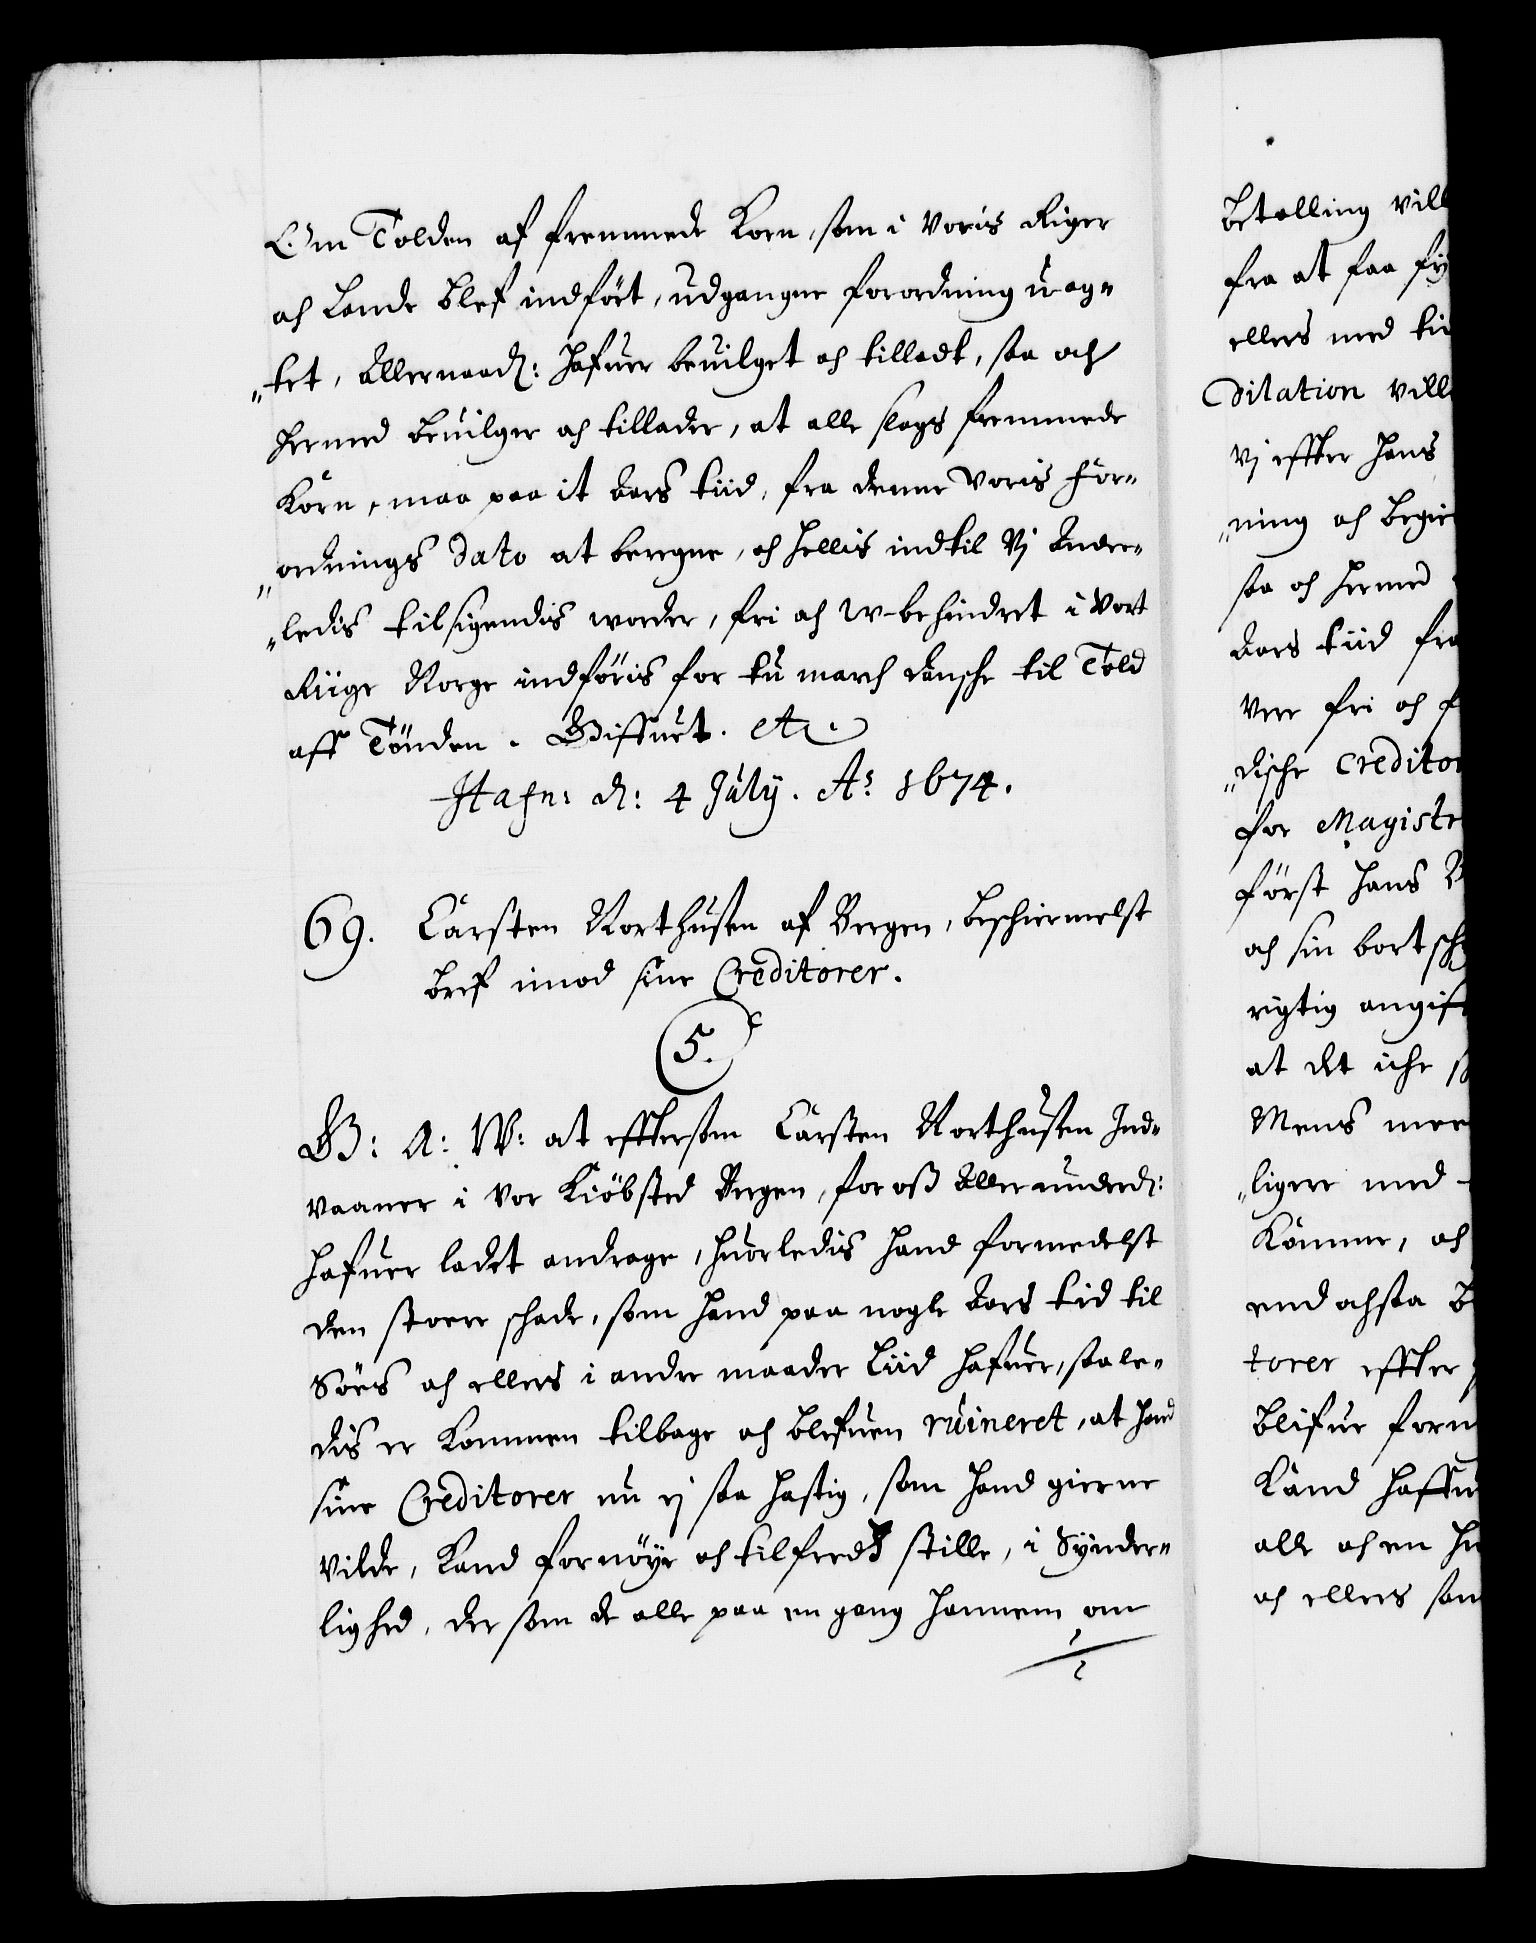 Om Tolden af fremmede Korn, som i Voris Riger
och Lande blef indfört, udgangne forordning uag„
„tet, Allernaad: hafuer beuilget och tilladt, saa och
hermed beuilger och tillader, at alle slags fremmede
Korn, maa paa it Aars tiid, fra denne Voris For„
„ordnings Dato at beregne, och hellis indtil Vj Ander„
„ledis tilsigendis worder, fri och w-behindret i Vort
Riige Norge indföris for tu march dansche til Told
aff Tönden. Giffuet. etc.
Hafn: d: 4 July. Ao 1674.
69. Carsten Northusen af Bergen, beschiermelse
bref imod sine Creditorer.
5.
G: A: W: at efftersom Carsten Northusen Ind„
vaaner i Vor Kiöbsted Bergen, for oß Allerunderd:
hafuer ladet andrage, huorledis hand formedelst
den stoere schade, som hand paa nogle Aars tid til
Söes och ellers i andre maader Liid hafuer, saale„
dis er kommen tilbage och blefuen ruineret, at hand
sine Creditorer nu ej saa hastig, som hand gierne
vilde, kand fornöye och tilfreds stille, i Synder„
lighed, der som de alle paa en gang hannem om
betalling vill
fra at faa
ellers med
Dilation vill
Vj effter hans
„ning och begie
saa och hermed
Aars tiid fra
Vere fri och
„dische Credito
for Magistr
först hans
och sin bort
rigtig angif
at det iche
Mens mer
„ligere med
Komme, och
end ochsaa
torer effter
blifue form
Kand haffu
alle och en
och ellers som